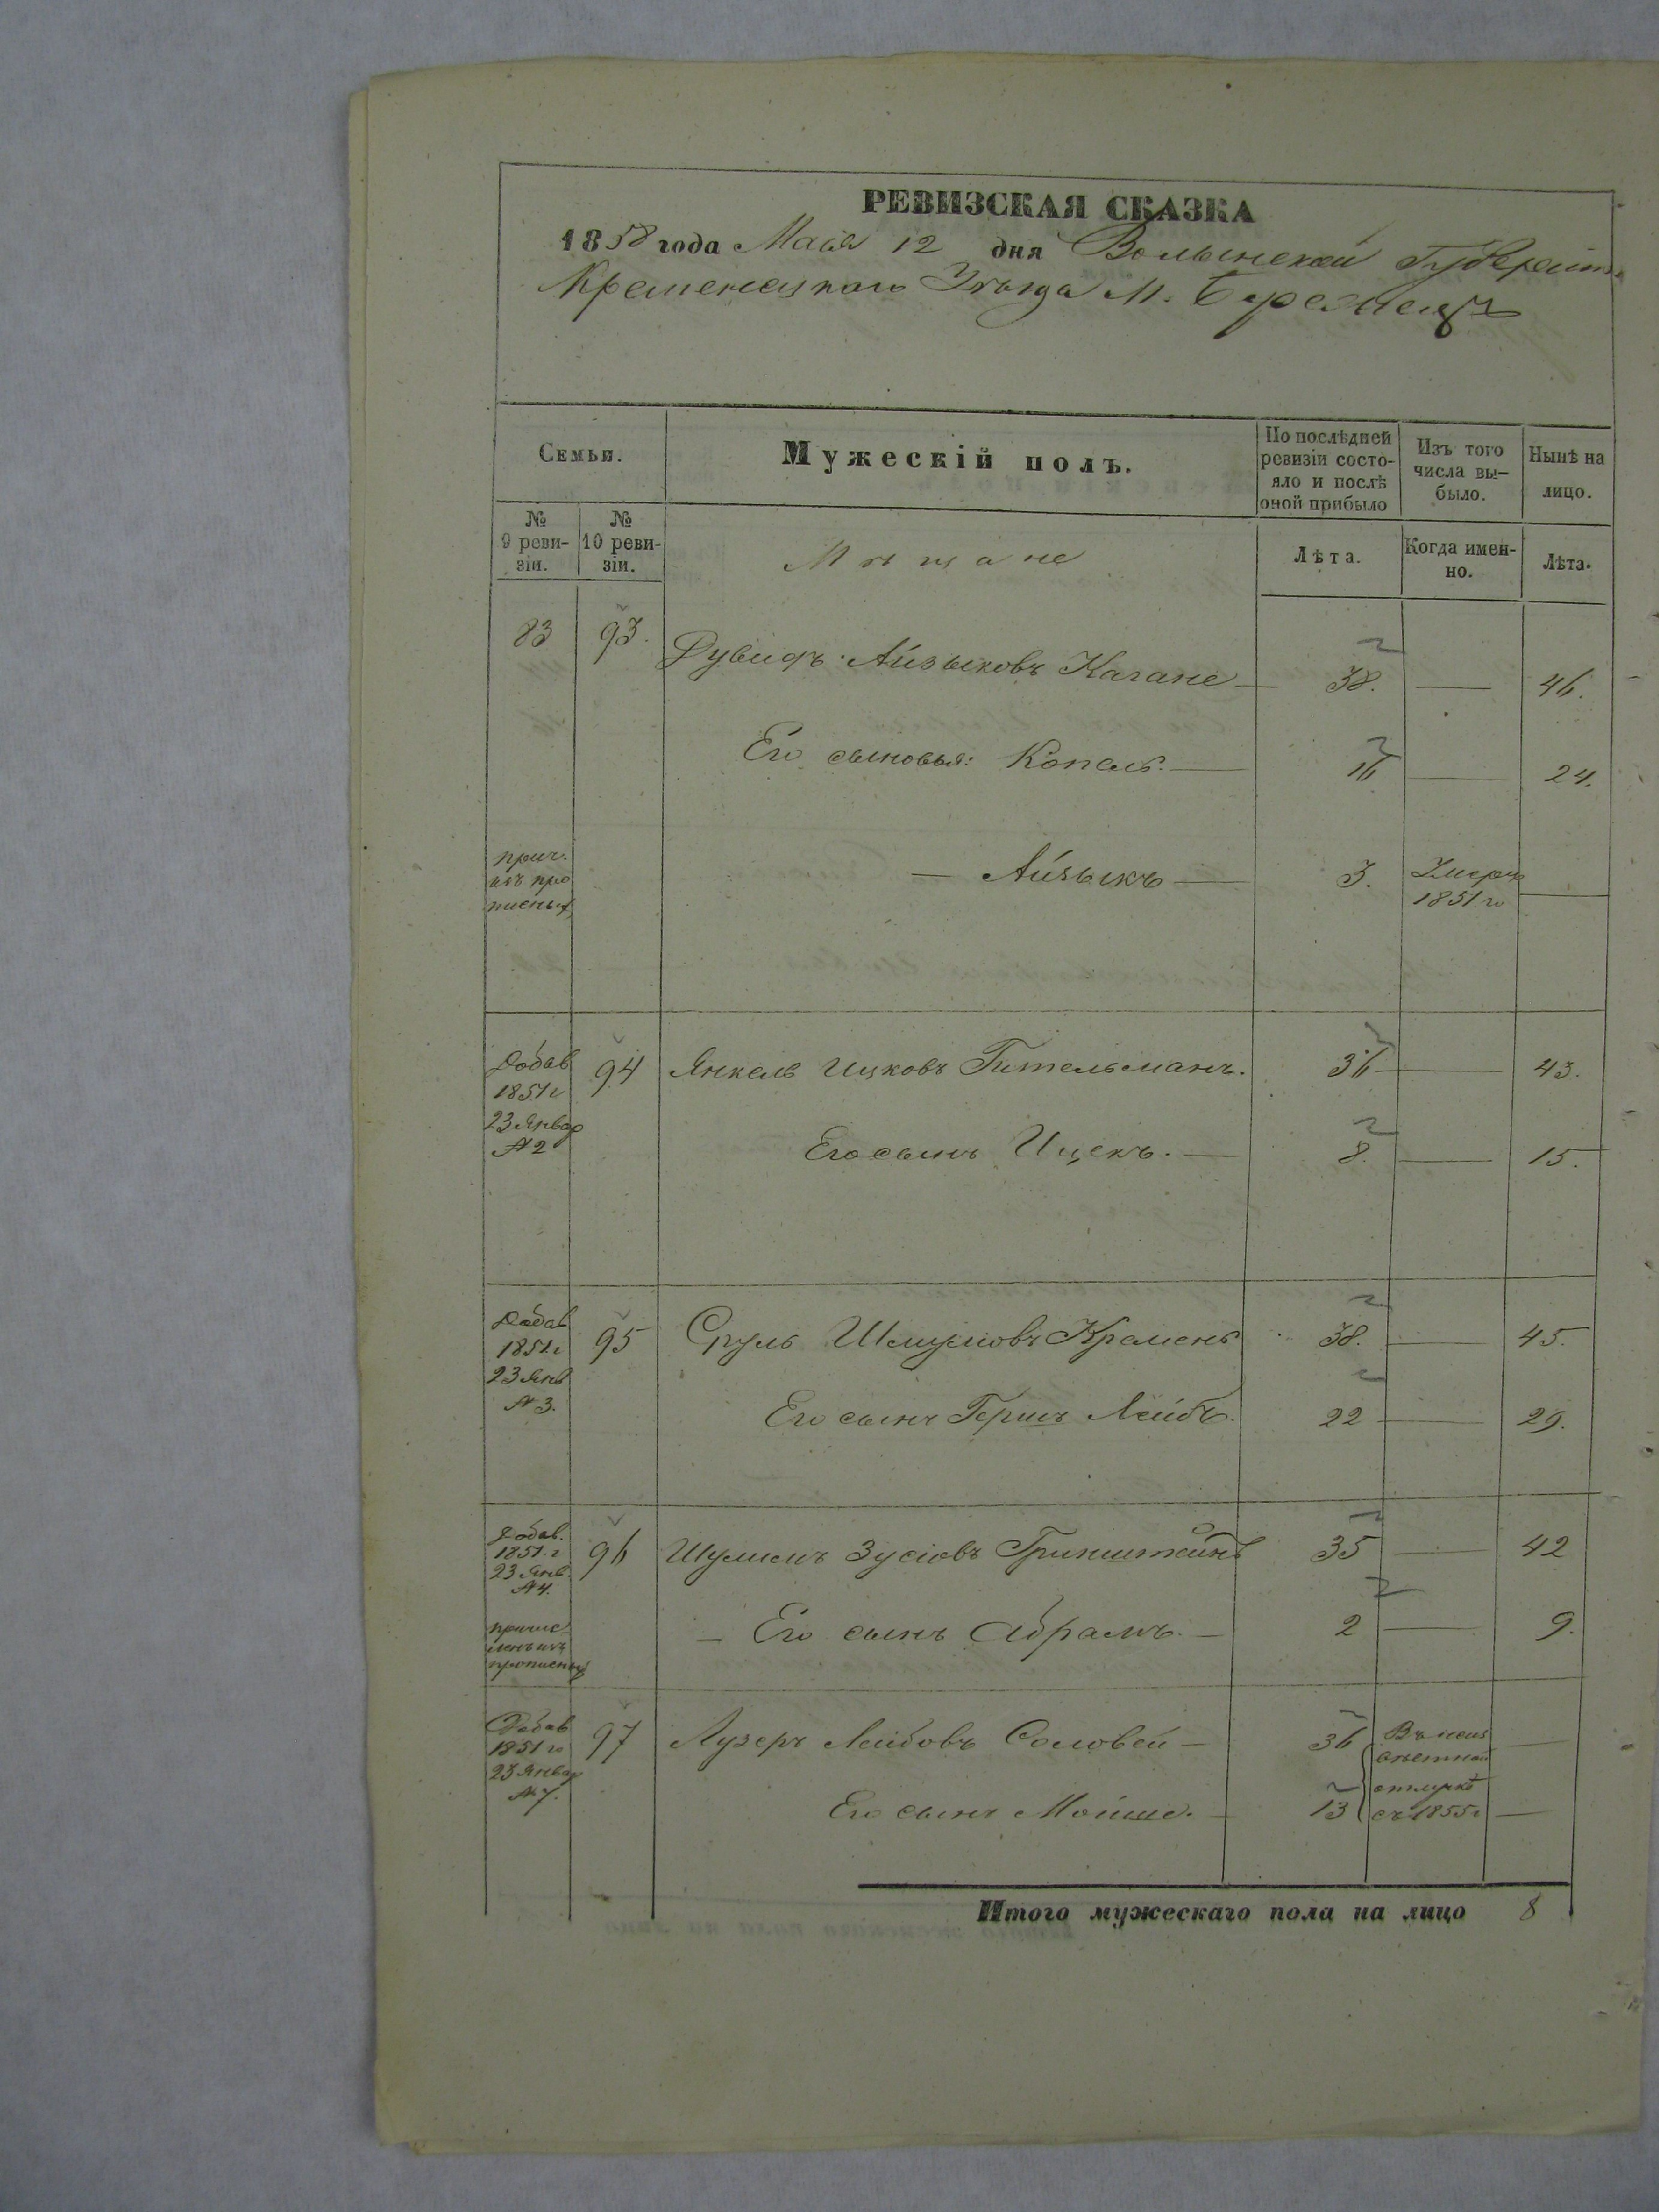 РЕВИЗСКАЯ СКАЗКА
1858 года Маія 12 дня Волынской Губерніи
Кременецкаго Уѣзда М. Бережецъ
Семьи.
Мужескій полъ.
По послѣдней ревизіи состояло и послѣ оной прибыло
Изъ того числа выбыло.
Нынѣ на лицо.
№ 9 ревизіи.
№ 10 ревизіи.
Мѣщане
Лѣта.
Когда именно.
Лѣта.
83 93. Дувидъ Айзыковъ Кагане — 38. — 46.
Его сыновья: Копель. — 16 — 24.
прич. изъ прописных — Айзыкъ — 3. Умеръ 1851 го —
Добав 1851 г 23 Январ № 2 94 Янкель Ицковъ Гительманъ. 36 — 43.
Его сынъ Ицекъ. — 8. — 15.
Добав 1851 г 23 Янв № 3. 95 Сруль Шмулиовъ Кремень 38. — 45.
Его сынъ Герш Лейбъ. 22 — 29.
Добав. 1851 г 23 Янв. № 4. 96 Шулимъ Зусіовъ Гринштейнъ 35 — 42
причисленъ изъ прописных — Его сынъ Абрамъ. — 2 — 9.
Добав 1851 го 23 Январ № 7. 97 Лузеръ Лейбовъ Соловей — 36 Въ неизвѣстной отлучкѣ съ 1855 г —
Его сынъ Мойше. — 13 —
Итого мужескаго пола на лицо 8